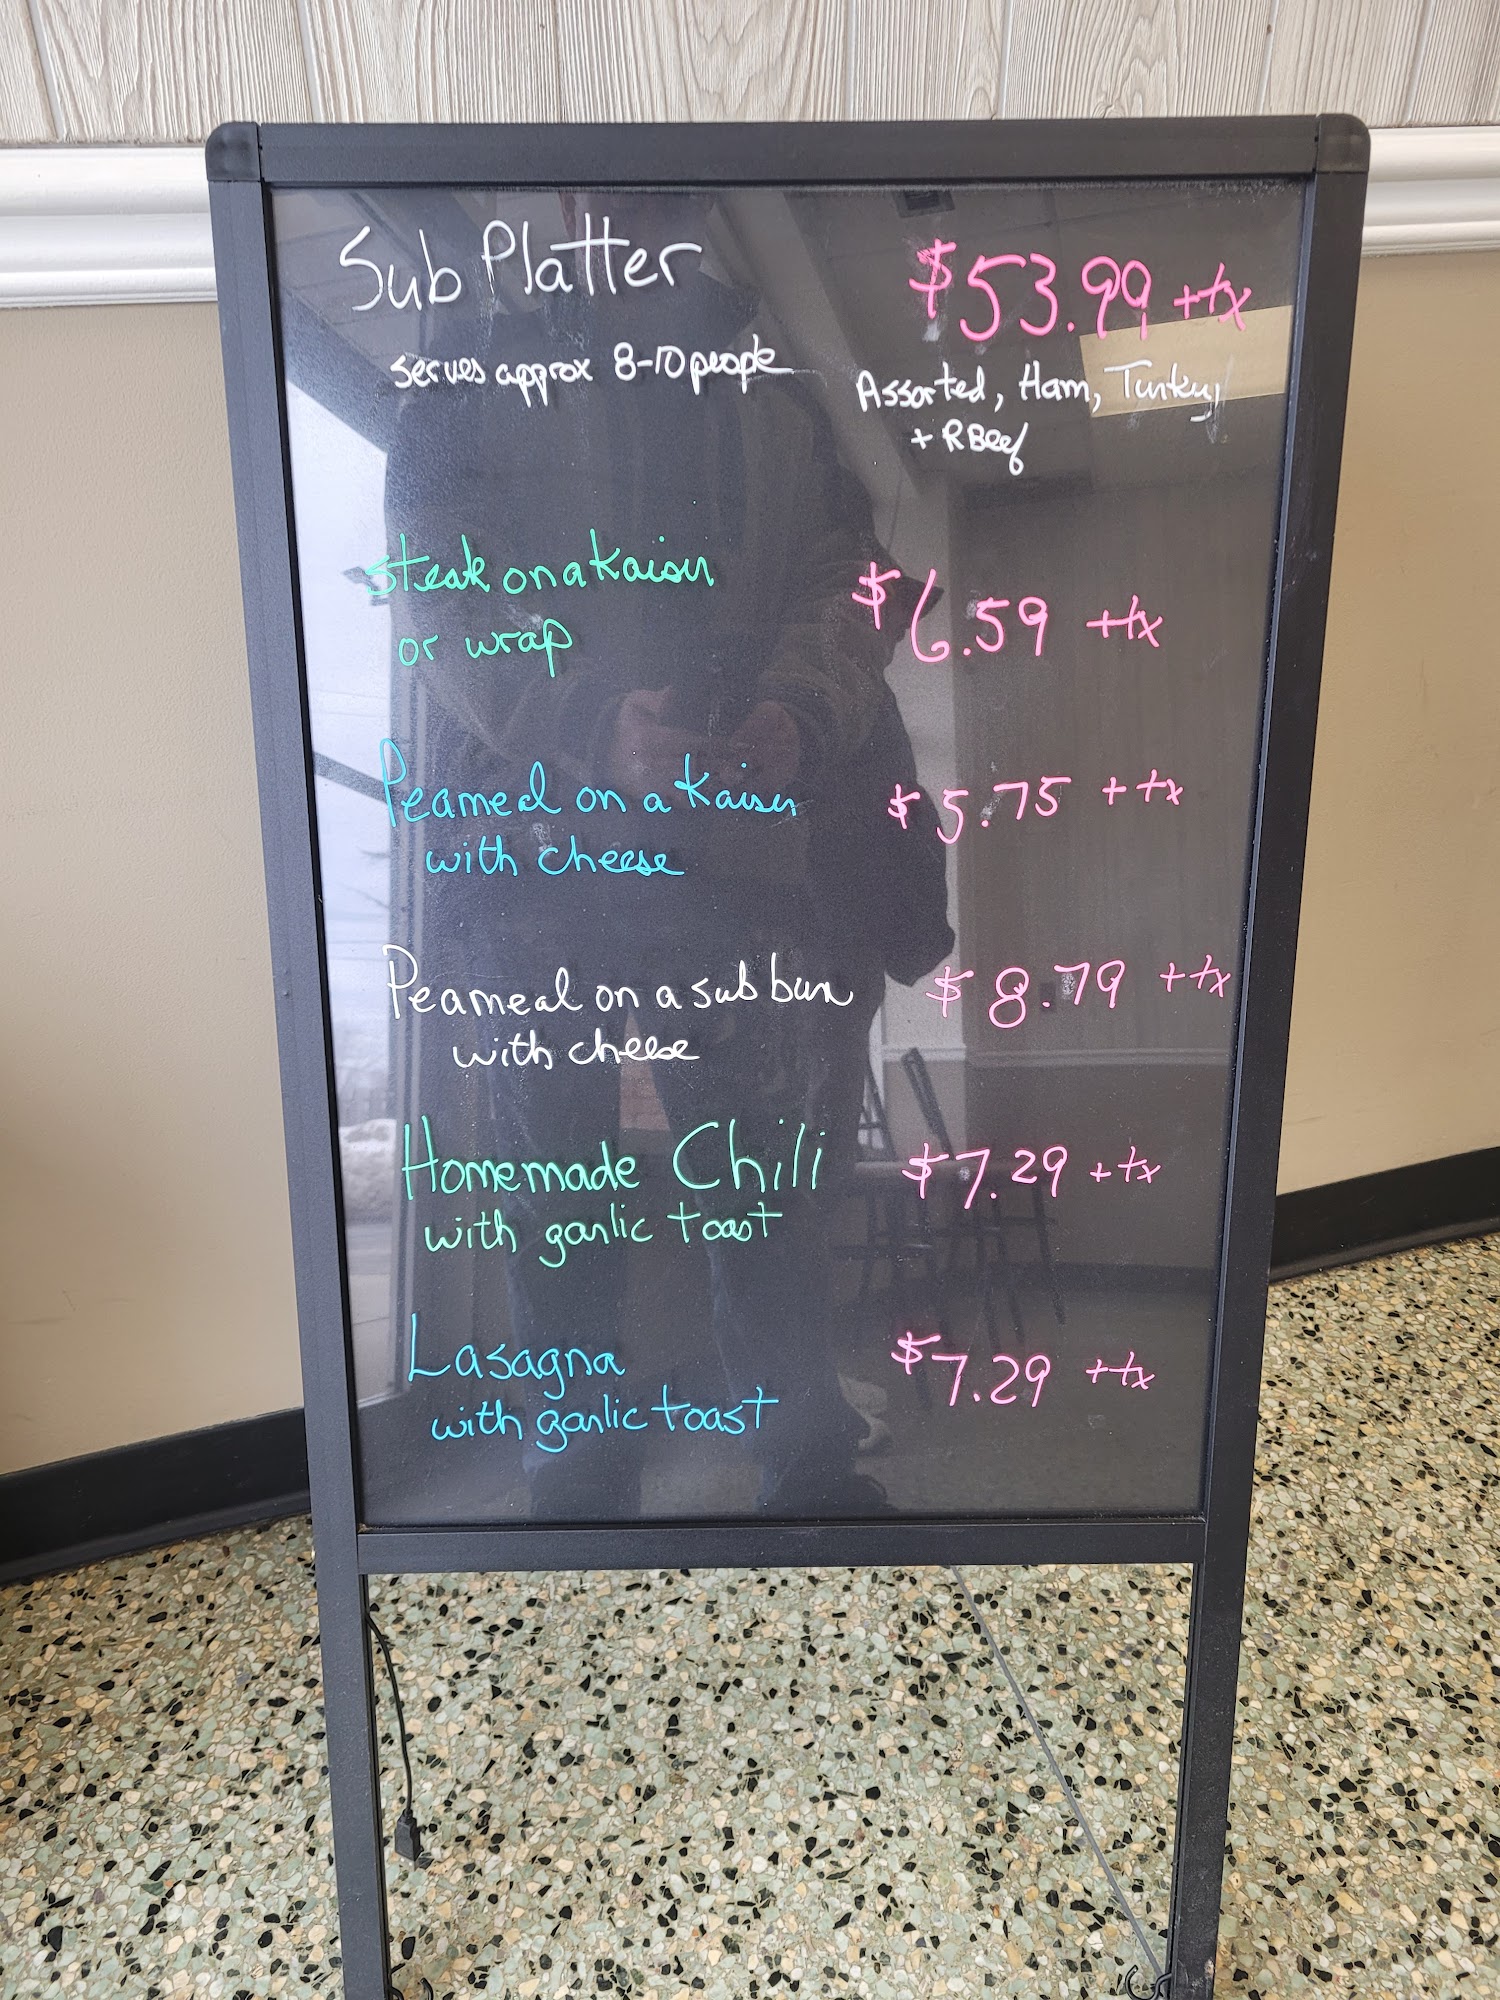 Sub Platter $53.99 +tx
serves approx 8-10 people Assorted, Ham, Turkey,
+ R Beef
Steak on a Kaiser $6.59 +tx
or wrap
Peameal on a Kaiser $5.75 + tx
with cheese
Peameal on a sub bun $8.79 +tx
with cheese
Homemade Chili $7.29 +tx
with garlic toast
Lasagna $7.29 +tx
with garlic toast